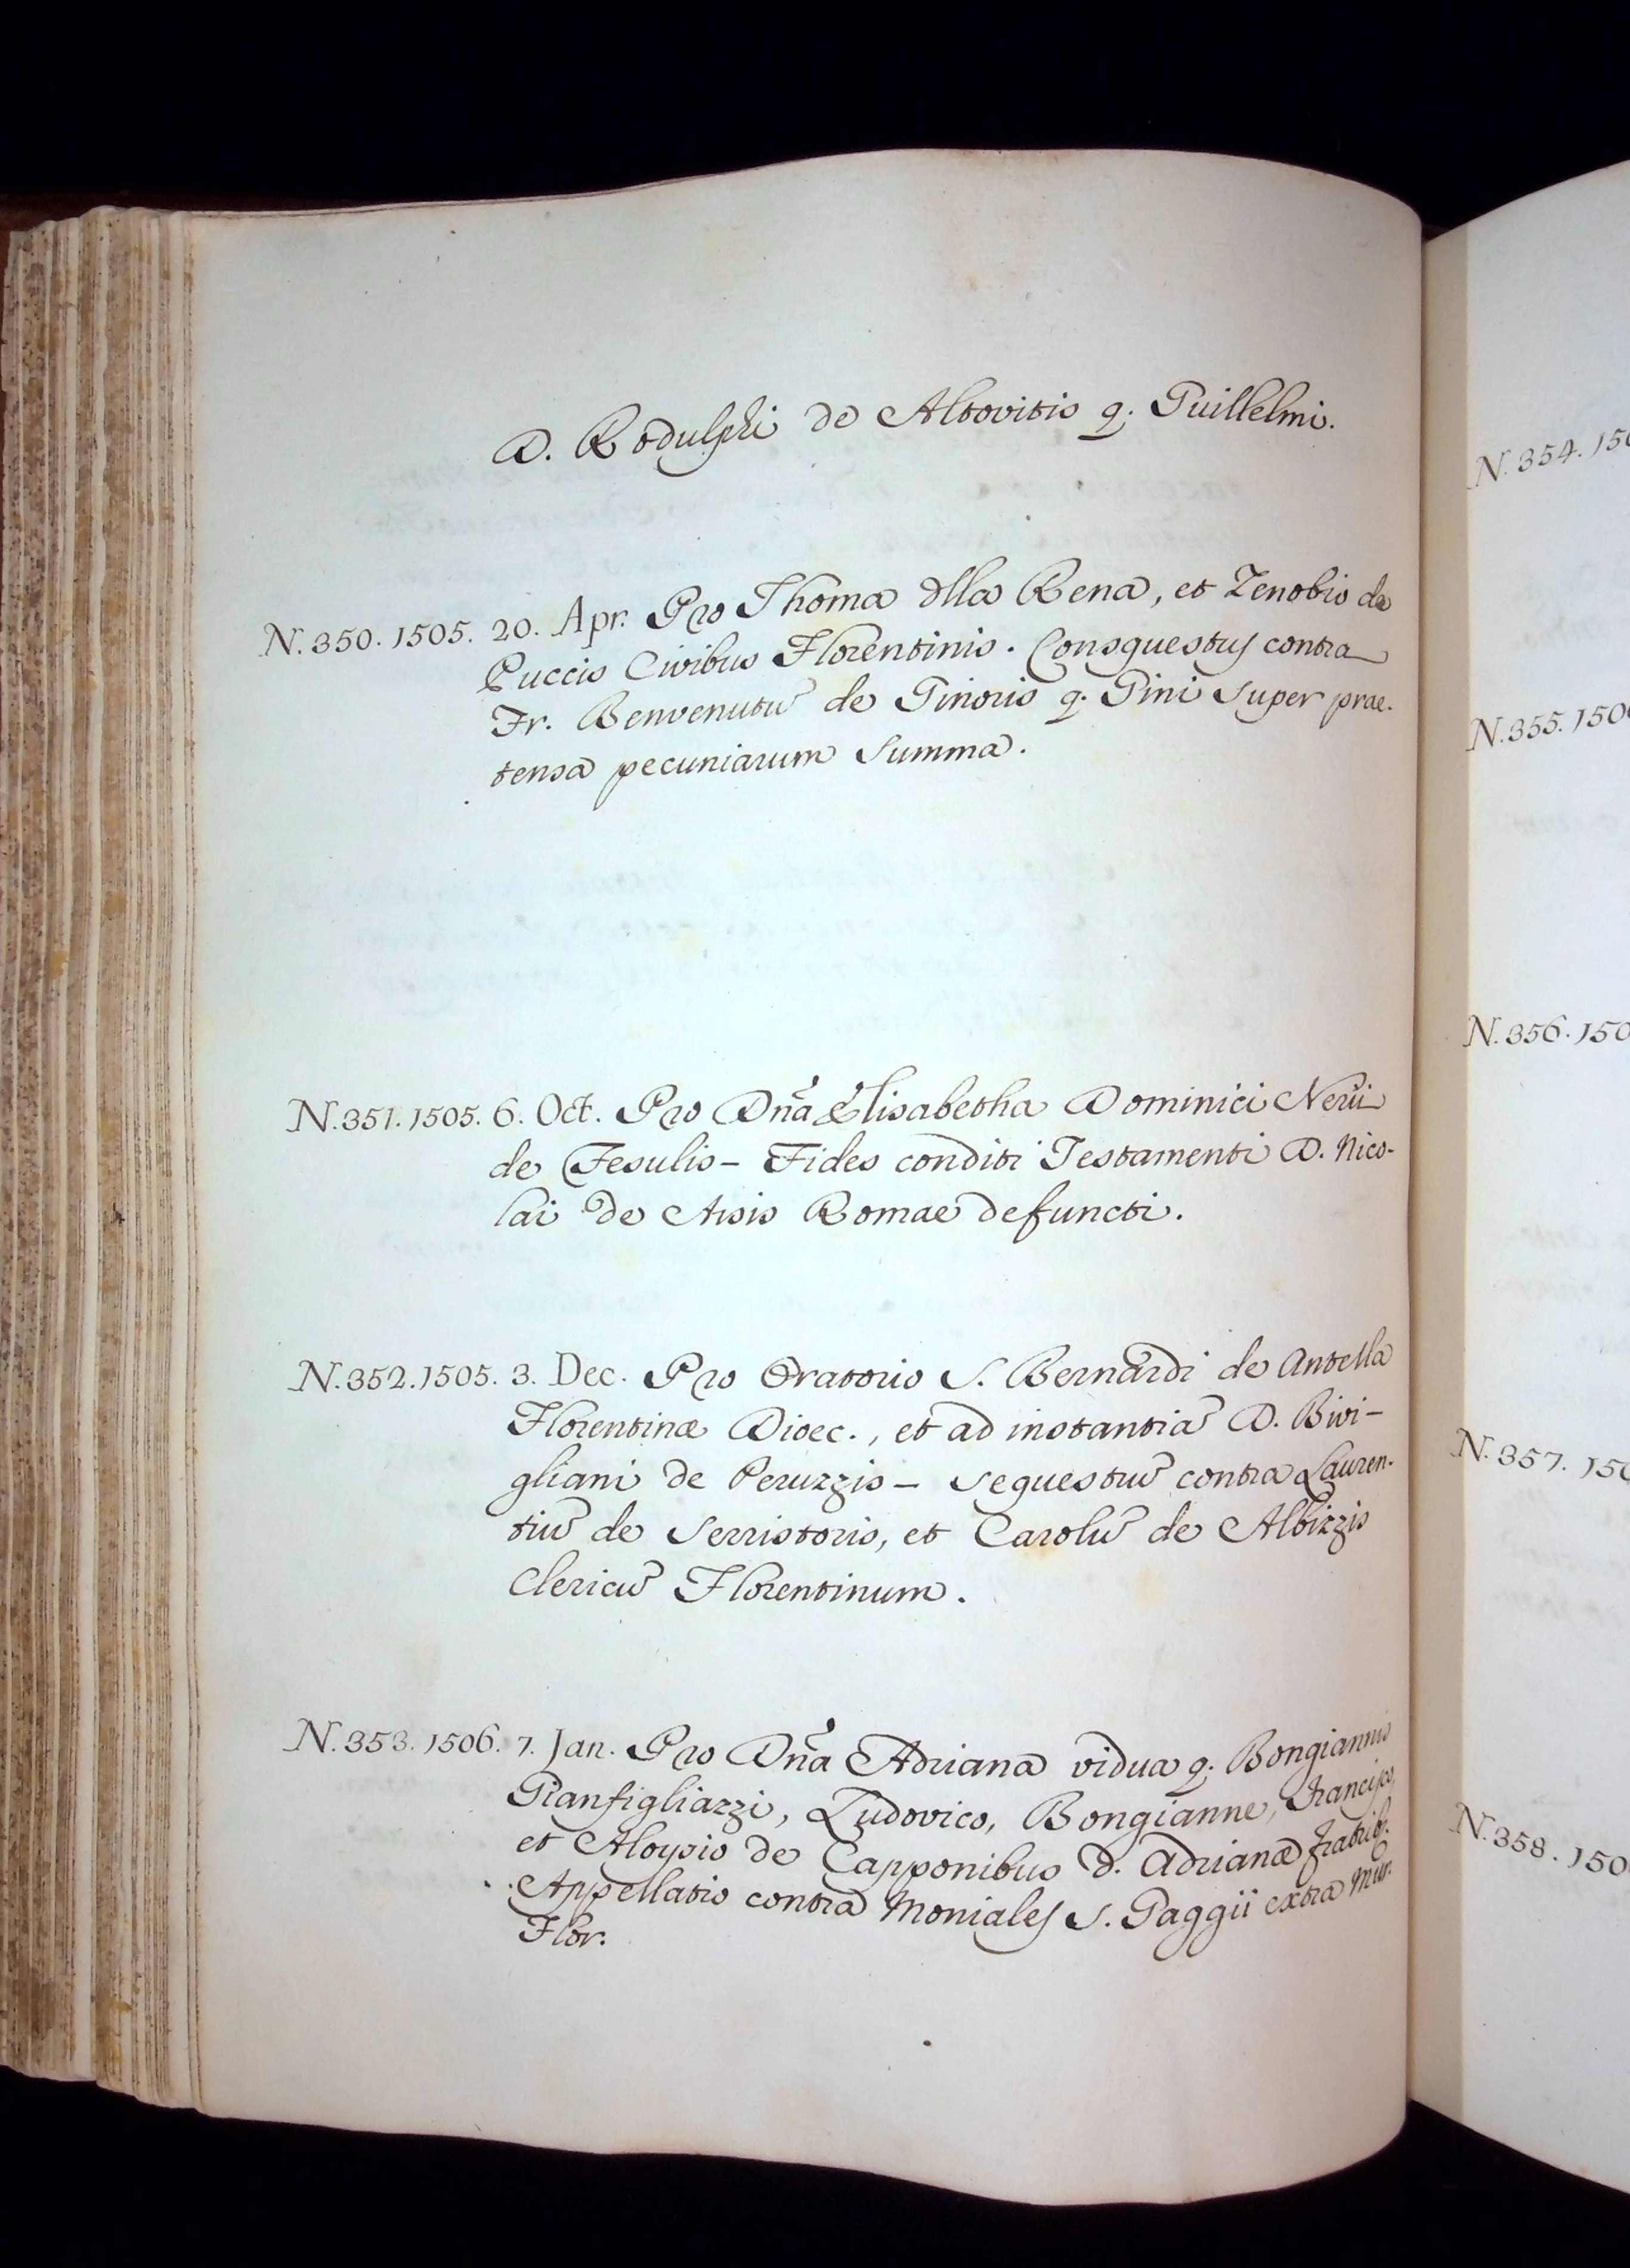 D. Rodulphi de Altovitis q. Guillelmi.
N. 350. 1505. 20. Apr. Pro Thoma dlla Rena, et Zenobio de
Puccis Civibus Florentinis. Consquestus contra
Fr. Benvenutũ de Ginoris q. Gini super prae-
tensa pecuniarum summa.
N. 351. 1505. 6. Oct. Pro Dña Elisabetha Dominici Nerii
de Fesulis – Fides conditi Testamenti D. Nico-
lai de Asis Romae defuncti.
N. 352. 1505. 3. Dec. Pro Oratorio S. Bernardi de Antella
Florentinæ Dioec., et ad instantiã D. Bivi-
gliani de Peruzzis – sequestrũ contra Lauren-
tiũ de Serristoris, et Carolũ de Albizzis
Clericũ Florentinum.
N. 353. 1506. 7. Jan. Pro Dña Adriana vidua q. Bongiannis
Gianfigliazzi, Ludovico, Bongianne, Francisco,
et Aloysio de Capponibus d. Adrianæ fratrib.
Appellatio contra Moniales S. Gaggii extra Mur.
Flor.
N. 354. 150
N. 355. 150
N. 356. 150
N. 357. 150
N. 358. 150